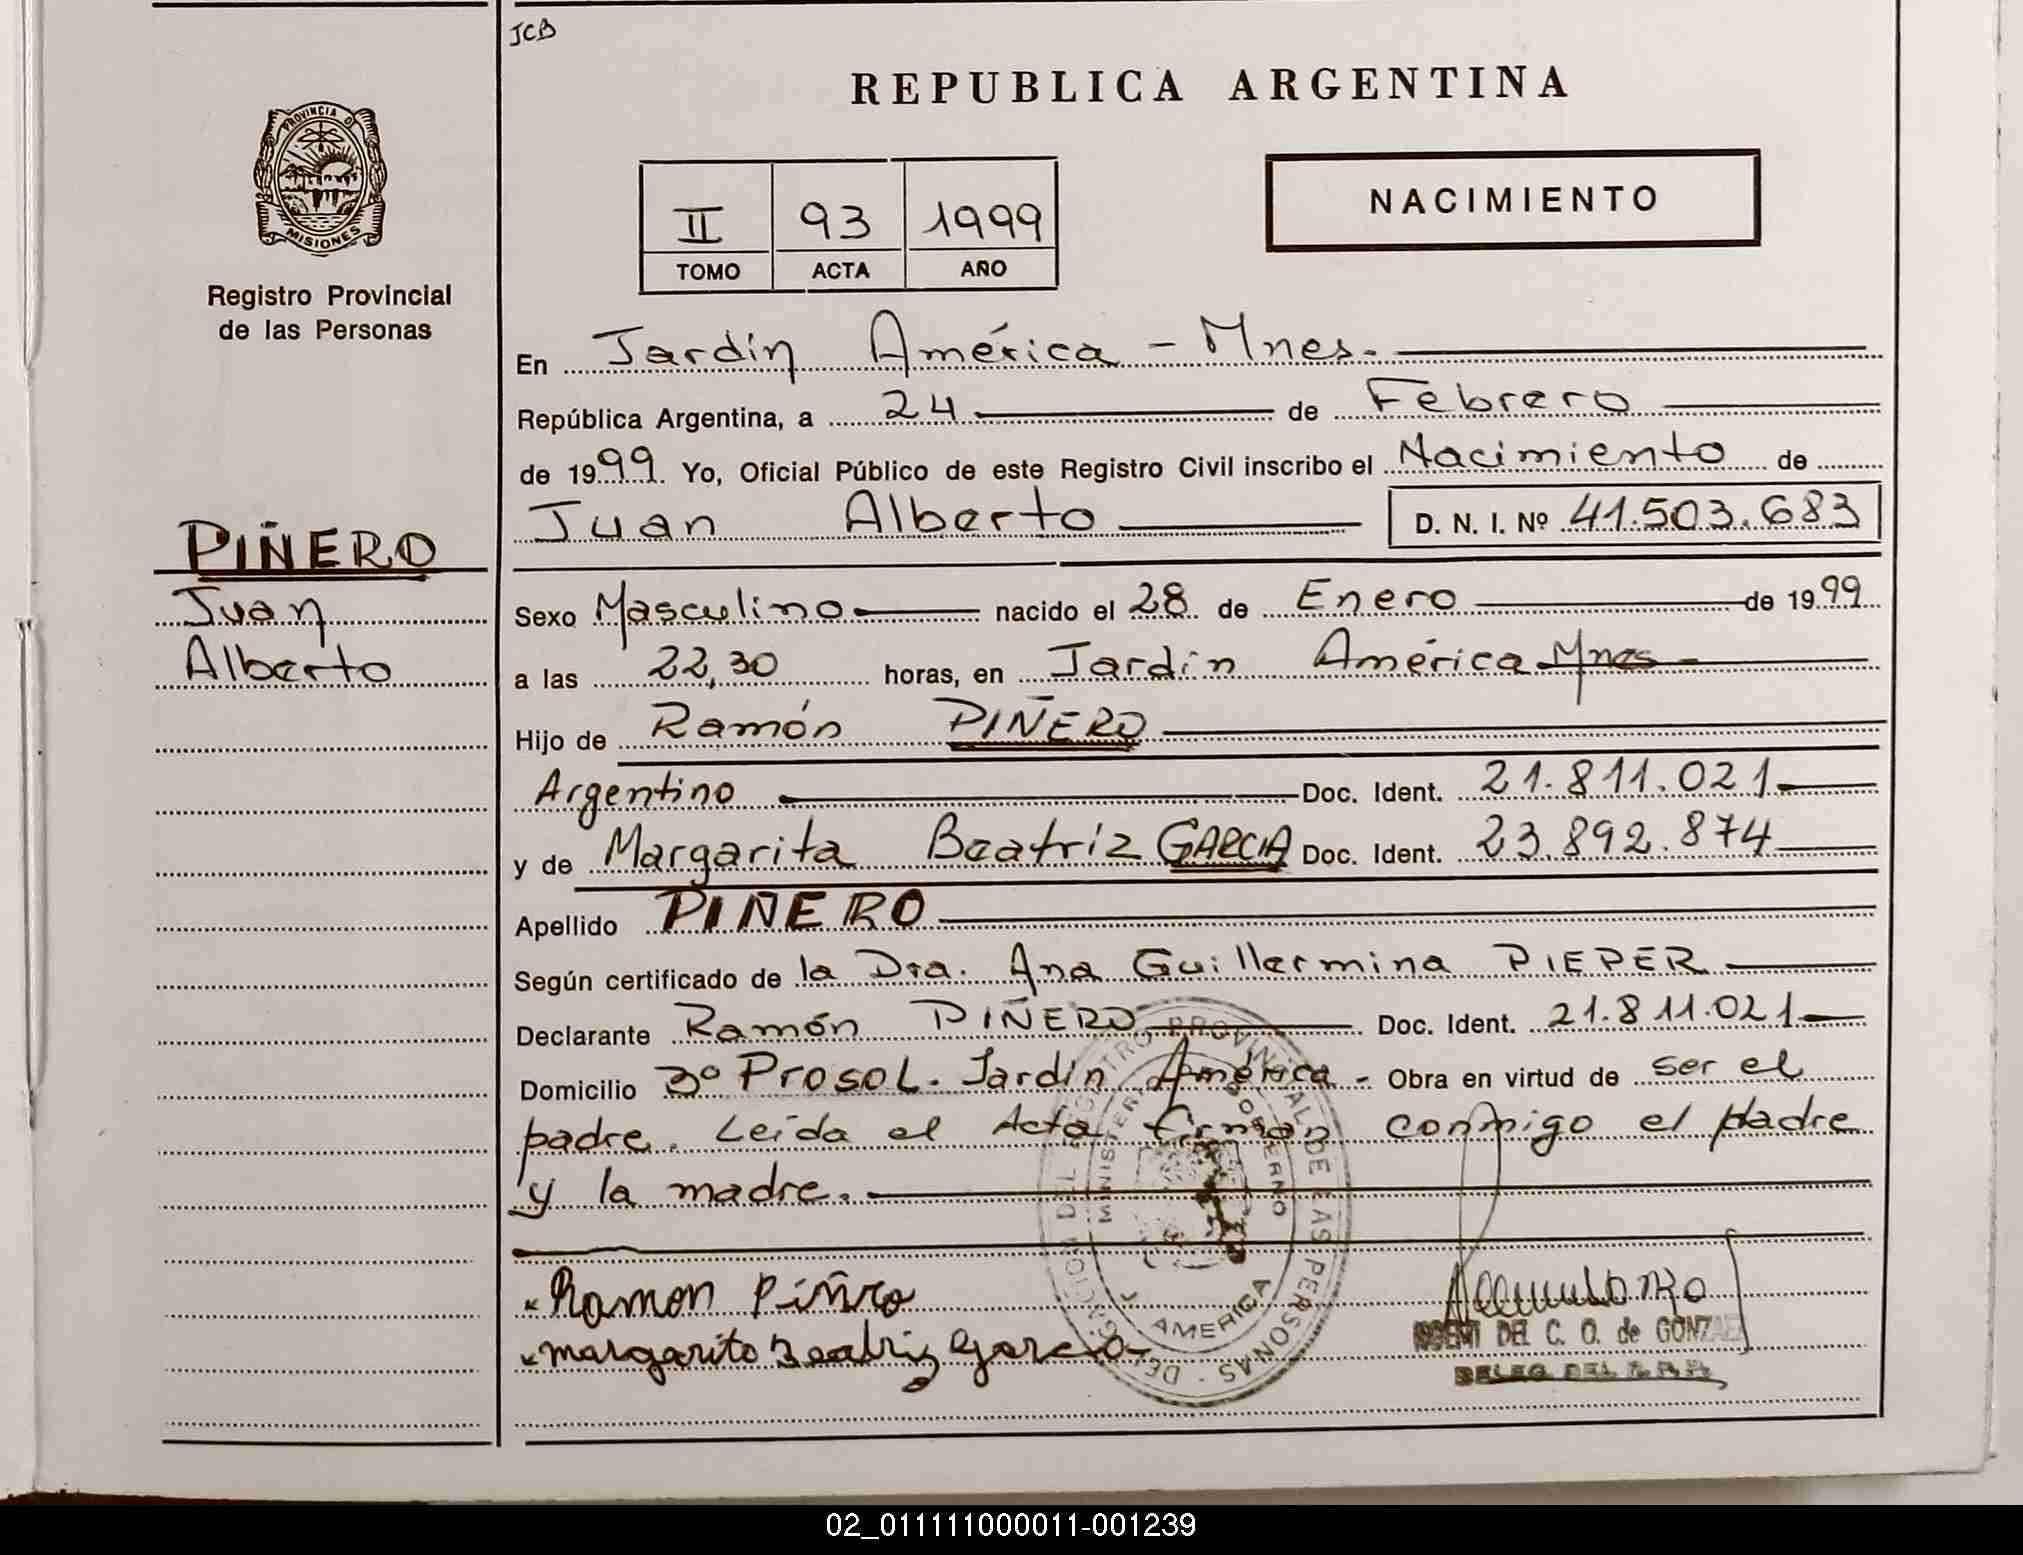 JCB
REPUBLICA ARGENTINA
PROVINCIA D
MISIONES
Registro Provincial
de las Personas
II 93 1999
TOMO ACTA AÑO
NACIMIENTO
En Jardín América - Mnes.
República Argentina, a 24 de Febrero
de 1999. Yo, Oficial Público de este Registro Civil inscribo el Nacimiento de
Juan Alberto D. N. I. Nº 41.503.683
PIÑERO
Juan
Alberto
Sexo Masculino nacido el 28 de Enero de 1999
a las 22,30 horas, en Jardín América Mnes
Hijo de Ramón PIÑERO
Argentino Doc. Ident. 21.811.021
y de Margarita Beatriz GARCIA Doc. Ident. 23.892.874
Apellido PIÑERO
Según certificado de la Dra. Ana Guillermina PIEPER
Declarante Ramón PIÑERO Doc. Ident. 21.811.021
Domicilio 3º Prosol. Jardín América - Obra en virtud de ser el
padre. Leída el Acta firman conmigo el padre
y la madre.
Ramon Piñro
margarito Beatriz Garcia
DEL C. O. de GONZ
DELEG. DEL R.P.P.
DELEGACION DEL REGISTRO PROVINCIAL DE LAS PERSONAS
MINISTERIO GOBIERNO
AMERICA
02_011111000011-001239